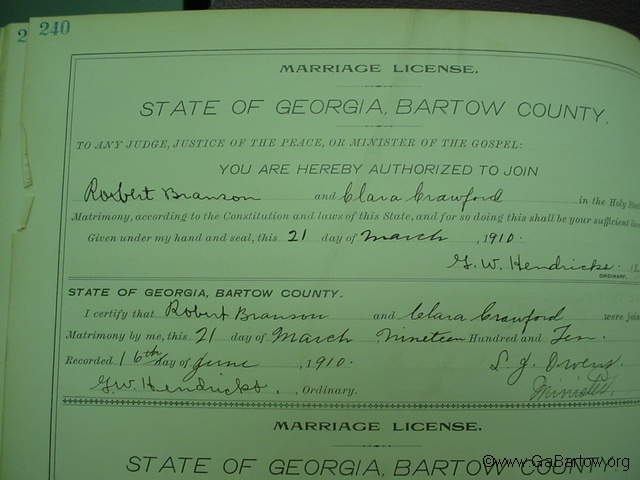 2
240
MARRIAGE LICENSE.
STATE OF GEORGIA, BARTOW COUNTY.
TO ANY JUDGE, JUSTICE OF THE PEACE, OR MINISTER OF THE GOSPEL:
YOU ARE HEREBY AUTHORIZED TO JOIN
Robert Branson and Clara Crawford in the Holy Stat
Matrimony, according to the Constitution and laws of this State, and for so doing this shall be your sufficient
Given under my hand and seal, this 21 day of March , 1910.
G. W. Hendricks. (L
ORDINARY.
STATE OF GEORGIA, BARTOW COUNTY.
I certify that Robert Branson and Clara Crawford were join
Matrimony by me, this 21 day of March Nineteen Hundred and Ten
Recorded 16th day of June , 1910. L. J. Owens
G. W. Hendricks , Ordinary. Minister
MARRIAGE LICENSE.
STATE OF GEORGIA, BARTOW COUNTY
©www.GaBartow.org